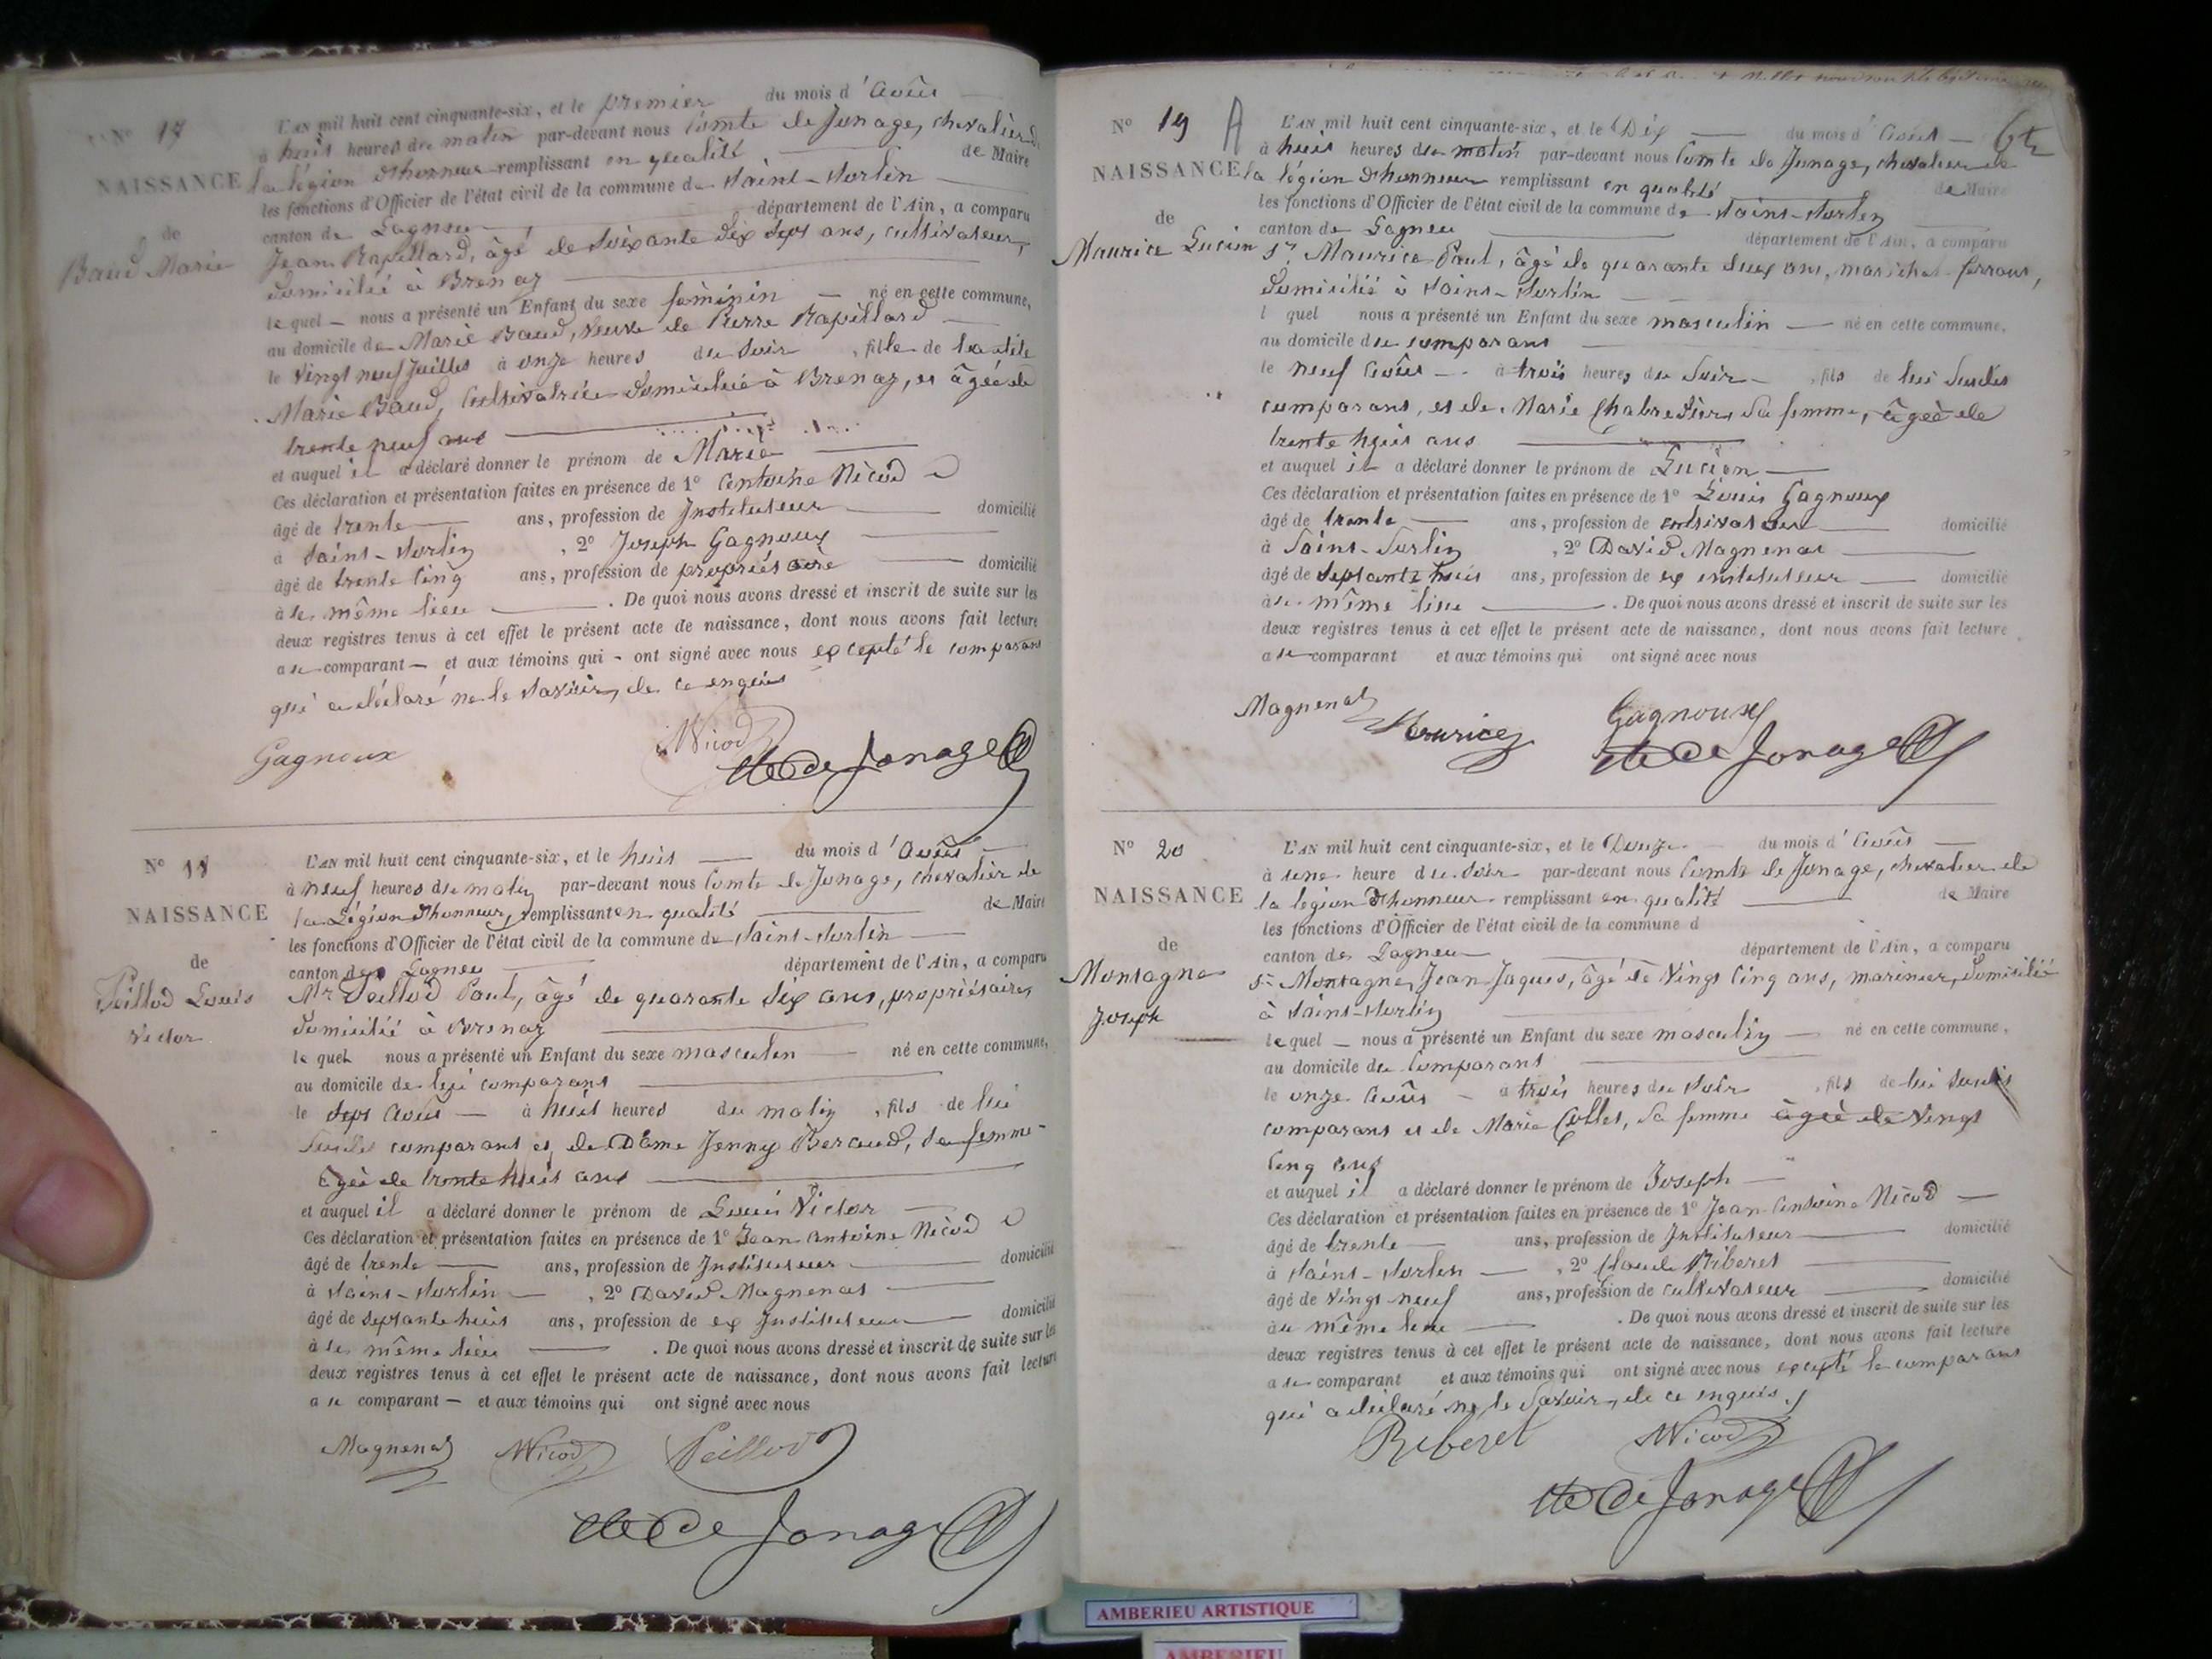 N° 17
NAISSANCE
de
Baud Marie
L'AN mil huit cent cinquante-six, et le premier du mois d'août
à huit heures du matin par-devant nous Comte de Jonage, chevalier de
la légion d'honneur remplissant en qualité de Maire
les fonctions d'Officier de l'état civil de la commune de Saint-Sorlin
canton de Lagnieu département de l'Ain, a comparu
Jean Rapillard, âgé de soixante dix sept ans, cultivateur,
domicilié à Brenaz
lequel nous a présenté un Enfant du sexe féminin né en cette commune,
au domicile de Marie Baud, veuve de Pierre Rapillard
le vingt neuf juillet à onze heures du soir, fille de ladite
Marie Baud, cultivatrice domiciliée à Brenaz, et âgée de
trente neuf ans
et auquel il a déclaré donner le prénom de Marie
Ces déclaration et présentation faites en présence de 1° Antoine Nicod
âgé de trente ans, profession de Instituteur domicilié
à Saint-Sorlin, 2° Joseph Gagnoux
âgé de trente cinq ans, profession de propriétaire domicilié
à le même lieu. De quoi nous avons dressé et inscrit de suite sur les
deux registres tenus à cet effet le présent acte de naissance, dont nous avons fait lecture
au comparant et aux témoins qui ont signé avec nous excepté le comparant
qui a déclaré ne le savoir, de ce enquis
Gagnoux Nicod
Cte de Jonage
N° 18
NAISSANCE
de
Peillod Louis
Victor
L'AN mil huit cent cinquante-six, et le huit du mois d'août
à neuf heures du matin par-devant nous Comte de Jonage, chevalier de
la Légion d'honneur, remplissant en qualité de Maire
les fonctions d'Officier de l'état civil de la commune de Saint-Sorlin
canton de Lagnieu département de l'Ain, a comparu
Mr Peillod Paul, âgé de quarante six ans, propriétaire,
domicilié à Brenaz
lequel nous a présenté un Enfant du sexe masculin né en cette commune,
au domicile de lui comparant
le sept août à huit heures du matin, fils de lui
susdit comparant et de Dame Jenny Beraud, sa femme
âgée de trente huit ans
et auquel il a déclaré donner le prénom de Louis Victor
Ces déclaration et présentation faites en présence de 1° Jean Antoine Nicod
âgé de trente ans, profession de Instituteur domicilié
à Saint-Sorlin, 2° David Magnenat
âgé de septante huit ans, profession de ex Instituteur domicilié
à le même lieu. De quoi nous avons dressé et inscrit de suite sur les
deux registres tenus à cet effet le présent acte de naissance, dont nous avons fait lecture
au comparant et aux témoins qui ont signé avec nous
Magnenat Nicod Peillod
Cte de Jonage
N° 19
NAISSANCE
de
Maurice Lucien
L'AN mil huit cent cinquante-six, et le Dix du mois d'août
à huit heures du matin par-devant nous Comte de Jonage, chevalier de
la légion d'honneur remplissant en qualité de Maire
les fonctions d'Officier de l'état civil de la commune de Saint-Sorlin
canton de Lagnieu département de l'Ain, a comparu
Sr. Maurice Paul, âgé de quarante deux ans, maréchal-ferrant,
domicilié à Saint-Sorlin
l quel nous a présenté un Enfant du sexe masculin né en cette commune,
au domicile du comparant
le neuf août à trois heures du soir, fils de lui susdit
comparant, et de Marie sa femme, âgée de
trente huit ans
et auquel il a déclaré donner le prénom de Lucien
Ces déclaration et présentation faites en présence de 1° Louis Gagnoux
âgé de trente ans, profession de cultivateur domicilié
à Saint-Sorlin, 2° David Magnenat
âgé de septante huit ans, profession de ex instituteur domicilié
à le même lieu. De quoi nous avons dressé et inscrit de suite sur les
deux registres tenus à cet effet le présent acte de naissance, dont nous avons fait lecture
au comparant et aux témoins qui ont signé avec nous
Magnenat Maurice Gagnoux
Cte de Jonage
N° 20
NAISSANCE
de
Montagne
Joseph
L'AN mil huit cent cinquante-six, et le Douze du mois d'août
à une heure du soir par-devant nous Comte de Jonage, chevalier de
la légion d'honneur remplissant en qualité de Maire
les fonctions d'Officier de l'état civil de la commune d
canton de Lagnieu département de l'Ain, a comparu
Sr. Montagne, Jean Jaques, âgé de vingt cinq ans, marinier, domicilié
à Saint-Sorlin
lequel nous a présenté un Enfant du sexe masculin né en cette commune,
au domicile du comparant
le onze août à trois heures du soir, fils de lui susdit
comparant et de Marie Collet, sa femme âgée de vingt
cinq ans
et auquel il a déclaré donner le prénom de Joseph
Ces déclaration et présentation faites en présence de 1° Jean Antoine Nicod
âgé de trente ans, profession de Instituteur domicilié
à Saint-Sorlin, 2° Claude Riberet
âgé de vingt neuf ans, profession de cultivateur domicilié
au même lieu. De quoi nous avons dressé et inscrit de suite sur les
deux registres tenus à cet effet le présent acte de naissance, dont nous avons fait lecture
au comparant et aux témoins qui ont signé avec nous excepté le comparant
qui a déclaré ne le savoir, de ce enquis
Riberet Nicod
Cte de Jonage
AMBERIEU ARTISTIQUE
AMBERIEU